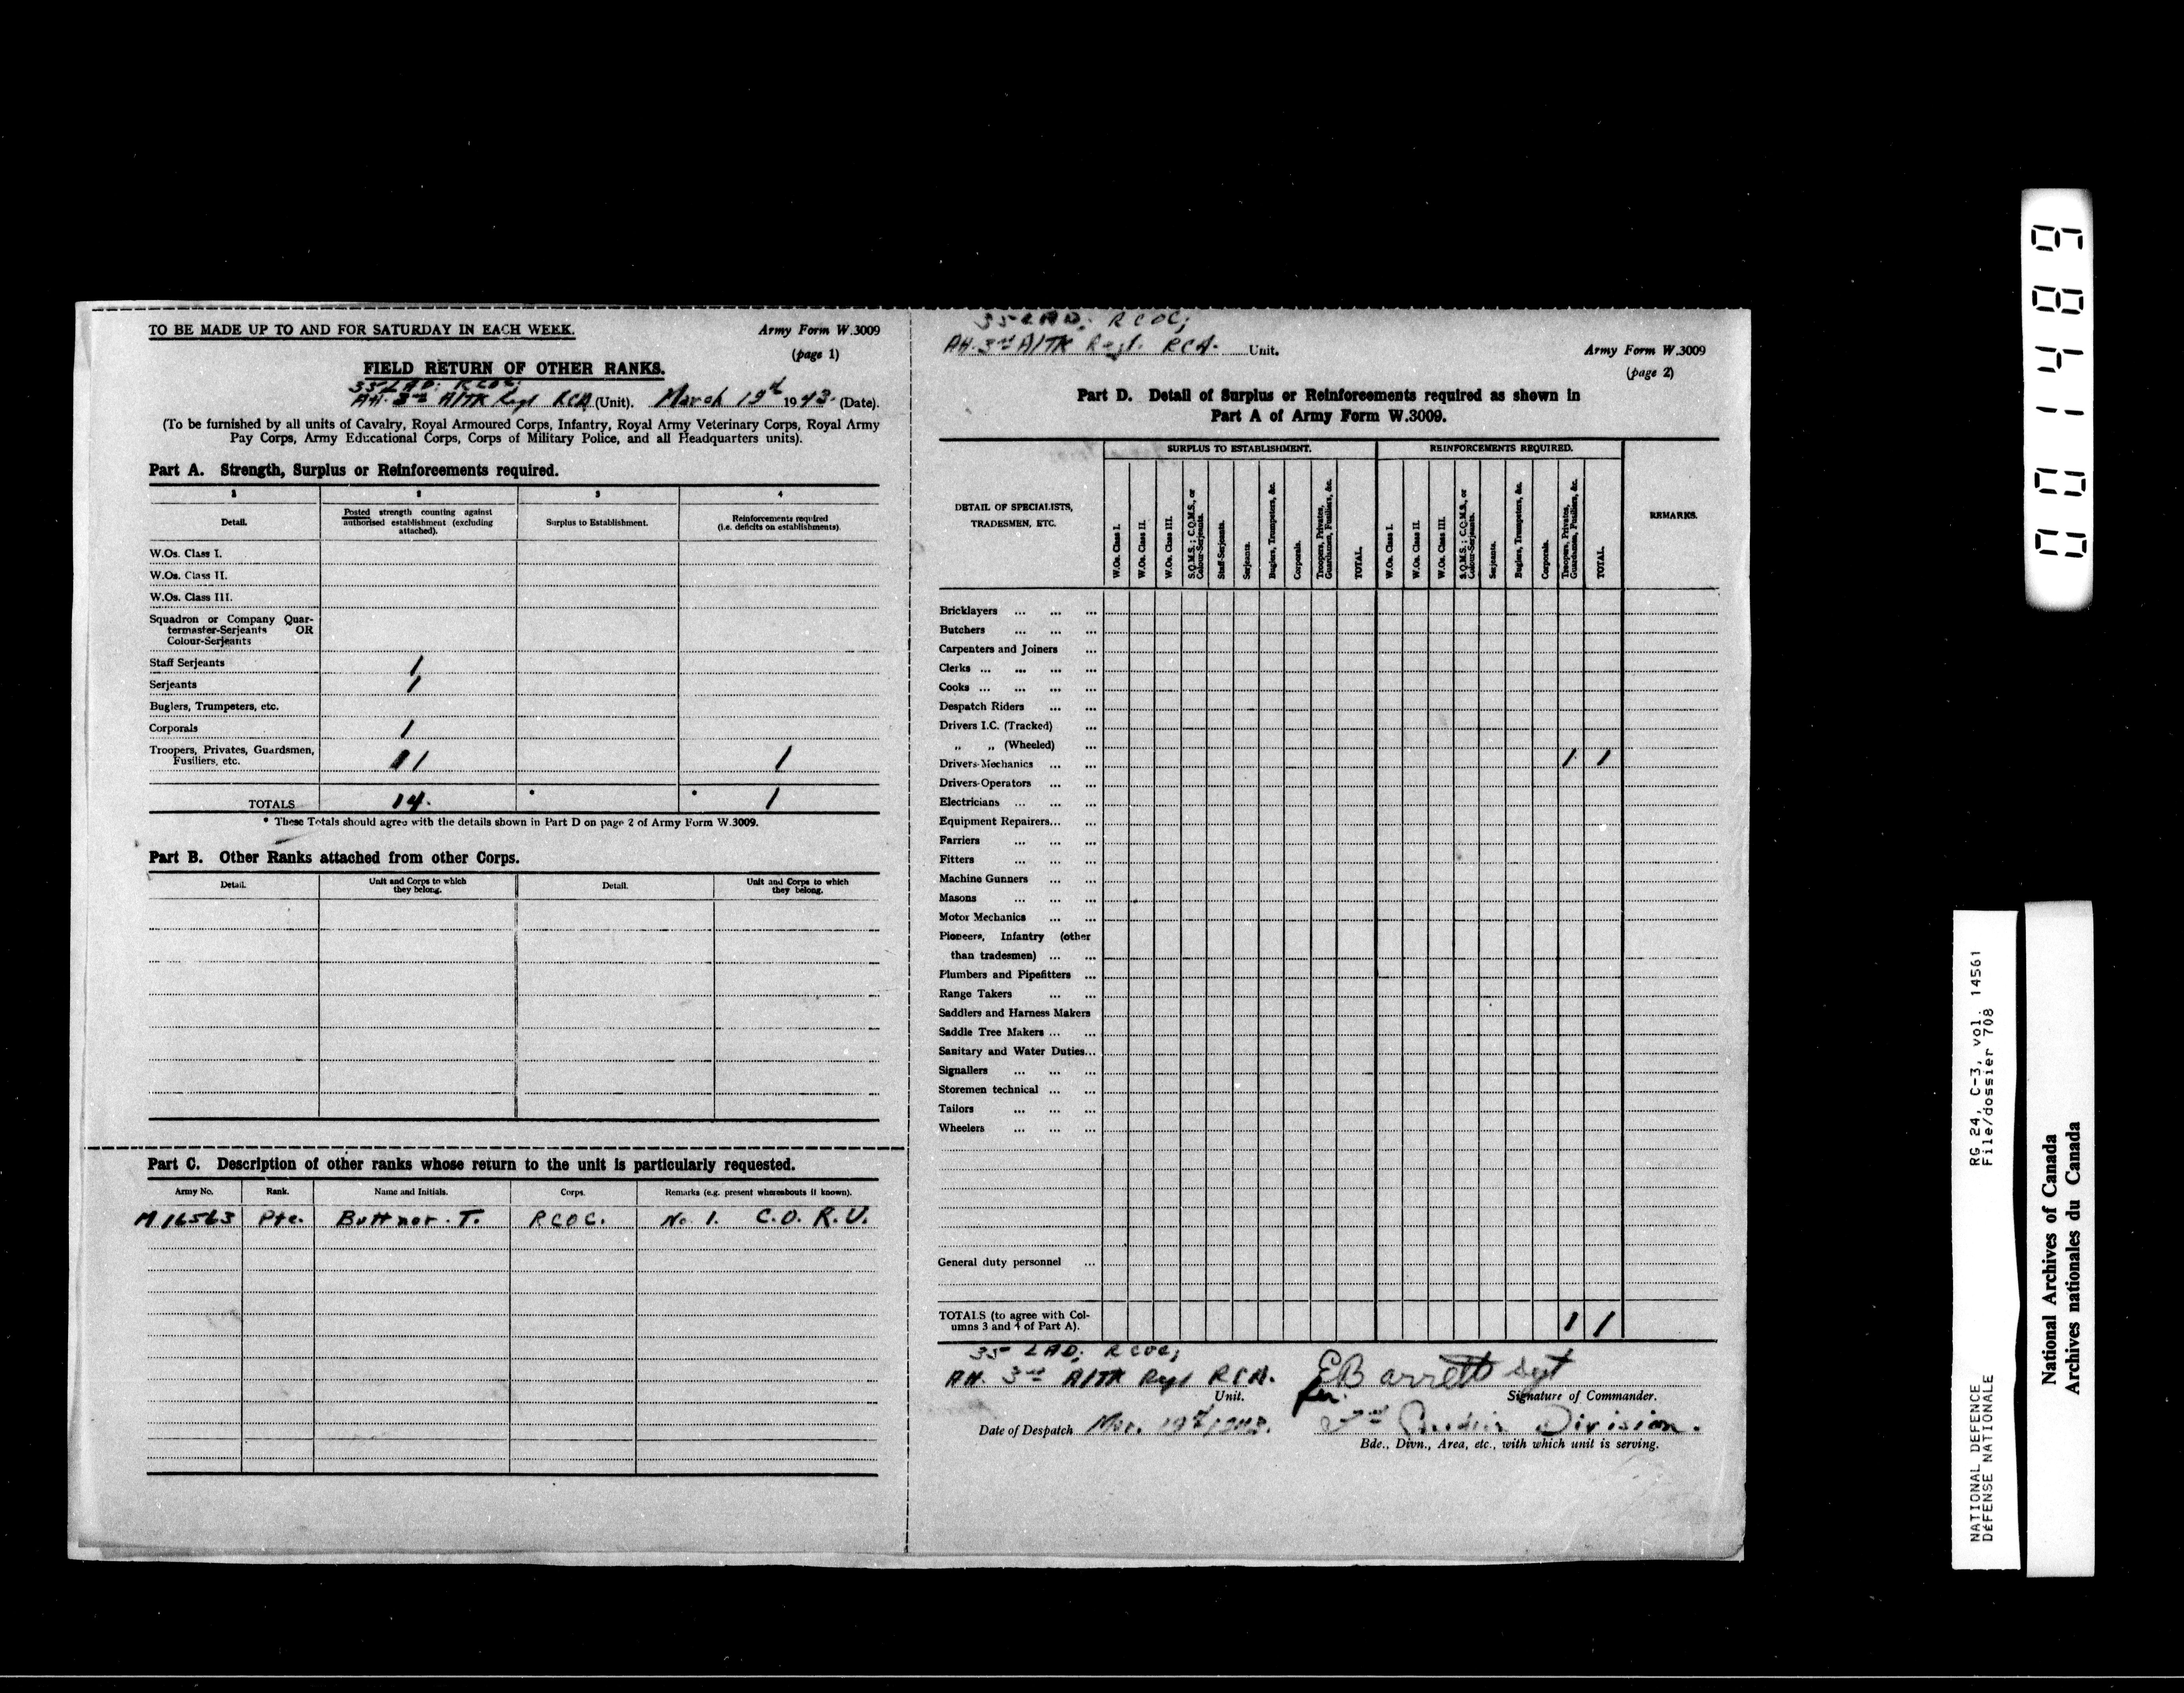 TO BE MADE UP TO AND FOR SATURDAY IN EACH WEEK.
Army Form W.3009
(page 1)
FIELD RETURN OF OTHER RANKS.
35 LAD: RCOC;
Att. 3rd A/TK Regt RCA (Unit). March 19th 1943. (Date).
(To be furnished by all units of Cavalry, Royal Armoured Corps, Infantry, Royal Army Veterinary Corps, Royal Army
Pay Corps, Army Educational Corps, Corps of Military Police, and all Headquarters units).
Part A. Strength, Surplus or Reinforcements required.
1 2 3 4
Detail.
Posted strength counting against
authorised establishment (excluding
attached).
Surplus to Establishment.
Reinforcements required
(i.e. deficits on establishments).
W.Os. Class I.
W.Os. Class II.
W.Os. Class III.
Squadron or Company Quar-
termaster-Serjeants OR
Colour-Serjeants
Staff Serjeants 1
Serjeants 1
Buglers, Trumpeters, etc.
Corporals 1
Troopers, Privates, Guardsmen,
Fusiliers, etc. 11 1
TOTALS 14. * * 1
* These Totals should agree with the details shown in Part D on page 2 of Army Form W.3009.
Part B. Other Ranks attached from other Corps.
Detail.
Unit and Corps to which
they belong.
Detail.
Unit and Corps to which
they belong.
Part C. Description of other ranks whose return to the unit is particularly requested.
Army No. Rank. Name and Initials. Corps. Remarks (e.g. present whereabouts if known).
M16563 Pte. Buttner. T. RCOC. No. 1. C.O.R.U.
35 LAD: RCOC;
Att. 3rd A/TK Regt. RCA. Unit.
Army Form W.3009
(page 2)
Part D. Detail of Surplus or Reinforcements required as shown in
Part A of Army Form W.3009.
DETAIL OF SPECIALISTS,
TRADESMEN, ETC.
SURPLUS TO ESTABLISHMENT.
W.Os. Class I.
W.Os. Class II.
W.Os. Class III.
S.Q.M.S.; C.Q.M.S., or
Colour-Serjeants.
Staff-Serjeants.
Serjeants.
Buglers, Trumpeters, &c.
Corporals.
Troopers, Privates,
Guardsmen, Fusiliers, &c.
TOTAL.
REINFORCEMENTS REQUIRED.
W.Os. Class I.
W.Os. Class II.
W.Os. Class III.
S.Q.M.S.; C.Q.M.S., or
Colour-Serjeants.
Serjeants.
Buglers, Trumpeters, &c.
Corporals.
Troopers, Privates,
Guardsmen, Fusiliers, &c.
TOTAL.
REMARKS.
Bricklayers ... ... ...
Butchers ... ... ...
Carpenters and Joiners ...
Clerks ... ... ... ...
Cooks ... ... ... ...
Despatch Riders ... ...
Drivers I.C. (Tracked) ...
„ „ (Wheeled) ...
Drivers-Mechanics ... ... 1 1
Drivers-Operators ... ...
Electricians ... ... ...
Equipment Repairers... ...
Farriers ... ... ...
Fitters ... ... ...
Machine Gunners ... ...
Masons ... ... ...
Motor Mechanics ... ...
Pioneers, Infantry (other
than tradesmen) ... ...
Plumbers and Pipefitters ...
Range Takers ... ...
Saddlers and Harness Makers
Saddle Tree Makers ... ...
Sanitary and Water Duties...
Signallers ... ... ...
Storemen technical ... ...
Tailors ... ... ...
Wheelers ... ... ...
General duty personnel ...
TOTALS (to agree with Col-
umns 3 and 4 of Part A). 1 1
35 LAD; RCOC;
Att. 3rd A/TK Regt RCA.
Unit.
EBarrett Sgt
for. Signature of Commander.
Date of Despatch Mar. 19th/1943.
Division.
Bde., Divn., Area, etc., with which unit is serving.
001489
NATIONAL DEFENCE RG 24, C-3, vol. 14561
DÉFENSE NATIONALE File/dossier 708
National Archives of Canada
Archives nationales du Canada